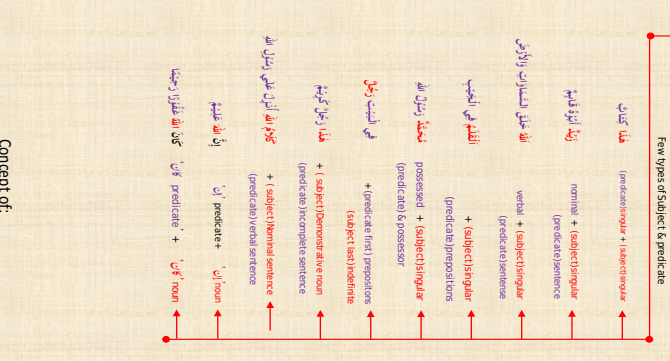 Few types of Subject & predicate
هَذَا كِتَابٌ
(predicate)singular + (subject)singular
زَيْدٌ اَبُوْهُ قَائِمٌ
nominal + (subject)singular
(predicate)sentence
اَللهُ خَلَقَ السَّمَاوَاتِ وَالْاَرْضَ
verbal + (subject)singular
(predicate)sentense
اَلْقَلَمُ فِي الْجَيْبِ
+ (subject)singular
(predicate)prepositions
مُحَمَّدٌ رَسُوْلُ اللهِ
possessed + (subject)singular
(predicate) & possessor
فِي الْبَيْتِ رَجُلٌ
+ (predicate first) prepositons
(subject last)indefinite
هَذَا رَجُلٌ كَرِيْمٌ
+ ( subject)Demonstrative noun
(predicate)incomplete sentence
كَلَامُ اللهِ اُنْزِلَ عَلَي رَسُوْلِ اللهِ
+ ( subject)Nominal sentence
(predicate)verbal sentence
اِنَّ اللهَ عَلِيْمٌ
'اِن' predicate+ 'اِن' noun
كَانَ اللهُ غَفُوْرًا رَحِيْمًا
'كَان' predicate + 'كَان' noun
Concept of: